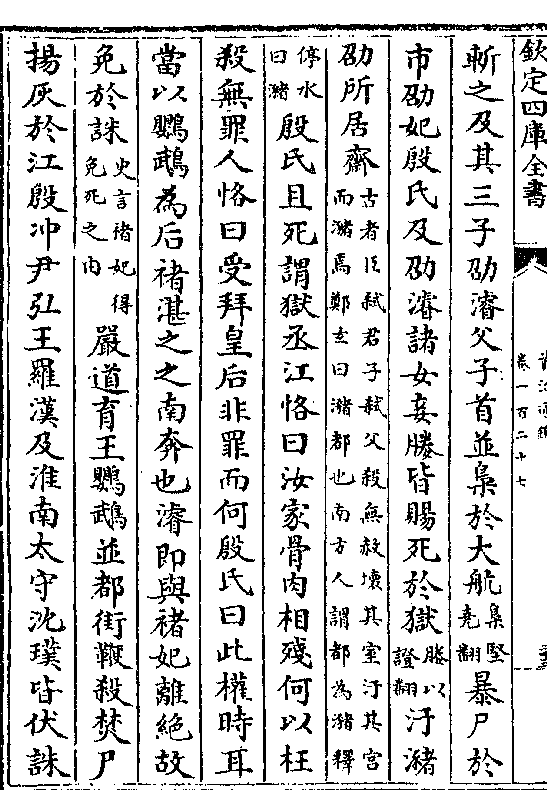 欽定四庫全書
資治通鑑
卷一百二十七
斬之及其三子劭濬父子首並梟於大航梟堅堯翻暴尸於
市劭妃殷氏及劭濬諸女妾媵皆賜死於獄媵以證翻汙瀦
劭所居齋古者臣弑君子弑父殺無赦壞其室汙其宫而瀦焉鄭玄曰瀦都也南方人謂都為瀦釋
停水曰瀦殷氏且死謂獄丞江恪曰汝家骨肉相殘何以枉
殺無罪人恪曰受拜皇后非罪而何殷氏曰此權時耳
當以鸚鵡為后褚湛之之南奔也濬即與褚妃離絶故
免於誅史言褚妃得免死之由嚴道育王鸚鵡並都街鞭殺焚尸
揚灰於江殷冲尹弘王羅漢及淮南太守沈璞皆伏誅